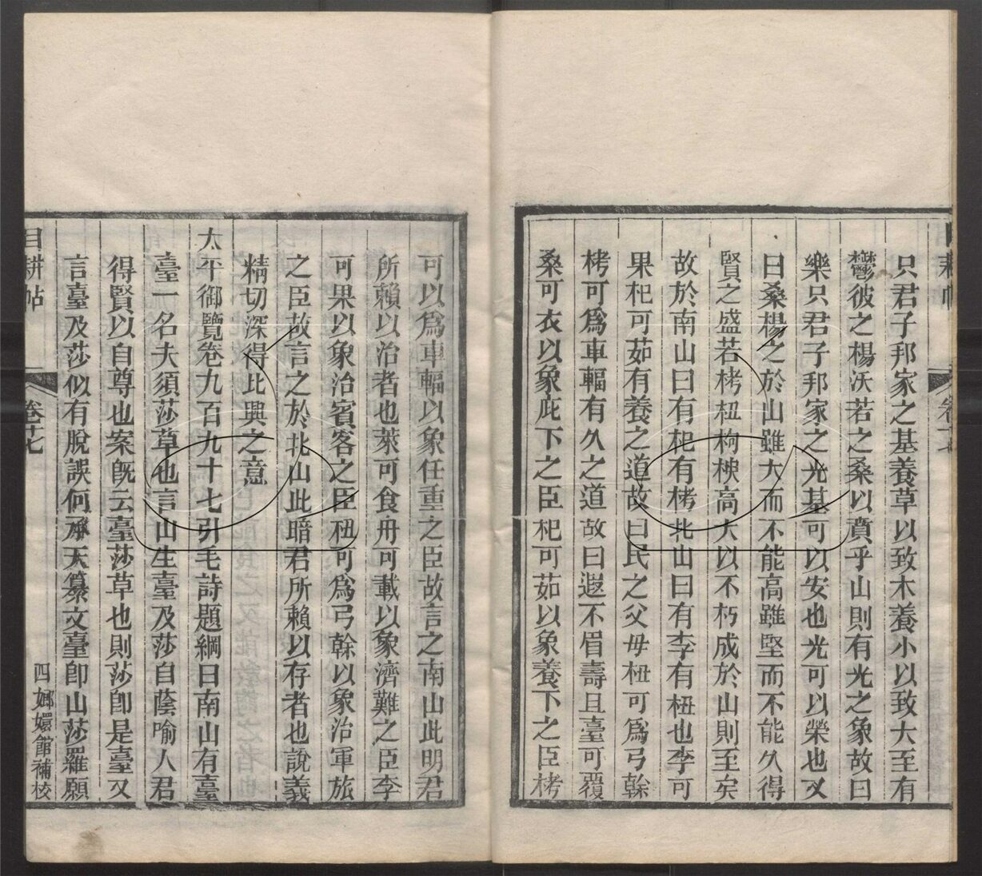 只君子邦家之基養草以致木養小以致大至有
鬱彼之楊沃若之桑以賁乎山則有光之象故曰
樂只君子邦家之光基可以安也光可以榮也又
曰桑楊之於山雖大而不能高雖堅而不能久得
賢之盛若栲杻枸楰高大以不朽成於山則至矣
故於南山曰有杞有栲北山曰有李有杻也李可
果杞可茹有養之道故曰民之父母杻可爲弓榦
栲可爲車輻有久之道故曰遐不眉壽且臺可覆
桑可衣以象庇下之臣杞可茹以象養下之臣栲
可以爲車輻以象任重之臣故言之南山此明君
所賴以治者也萊可食舟可載以象濟難之臣李
可果以象治賓客之臣杻可爲弓榦以象治軍旅
之臣故言之於北山此暗君所賴以存者也說義
精切深得比興之意
太平御覽卷九百九十七引毛詩題綱曰南山有臺
臺一名夫須莎草也言山生臺及莎自蔭喻人君
得賢以自尊也案旣云臺莎草也則莎卽是臺又
言臺及莎似有脫誤何承天纂文臺卽山莎羅願
目耕帖
卷十七
四
嫏嬛館補校